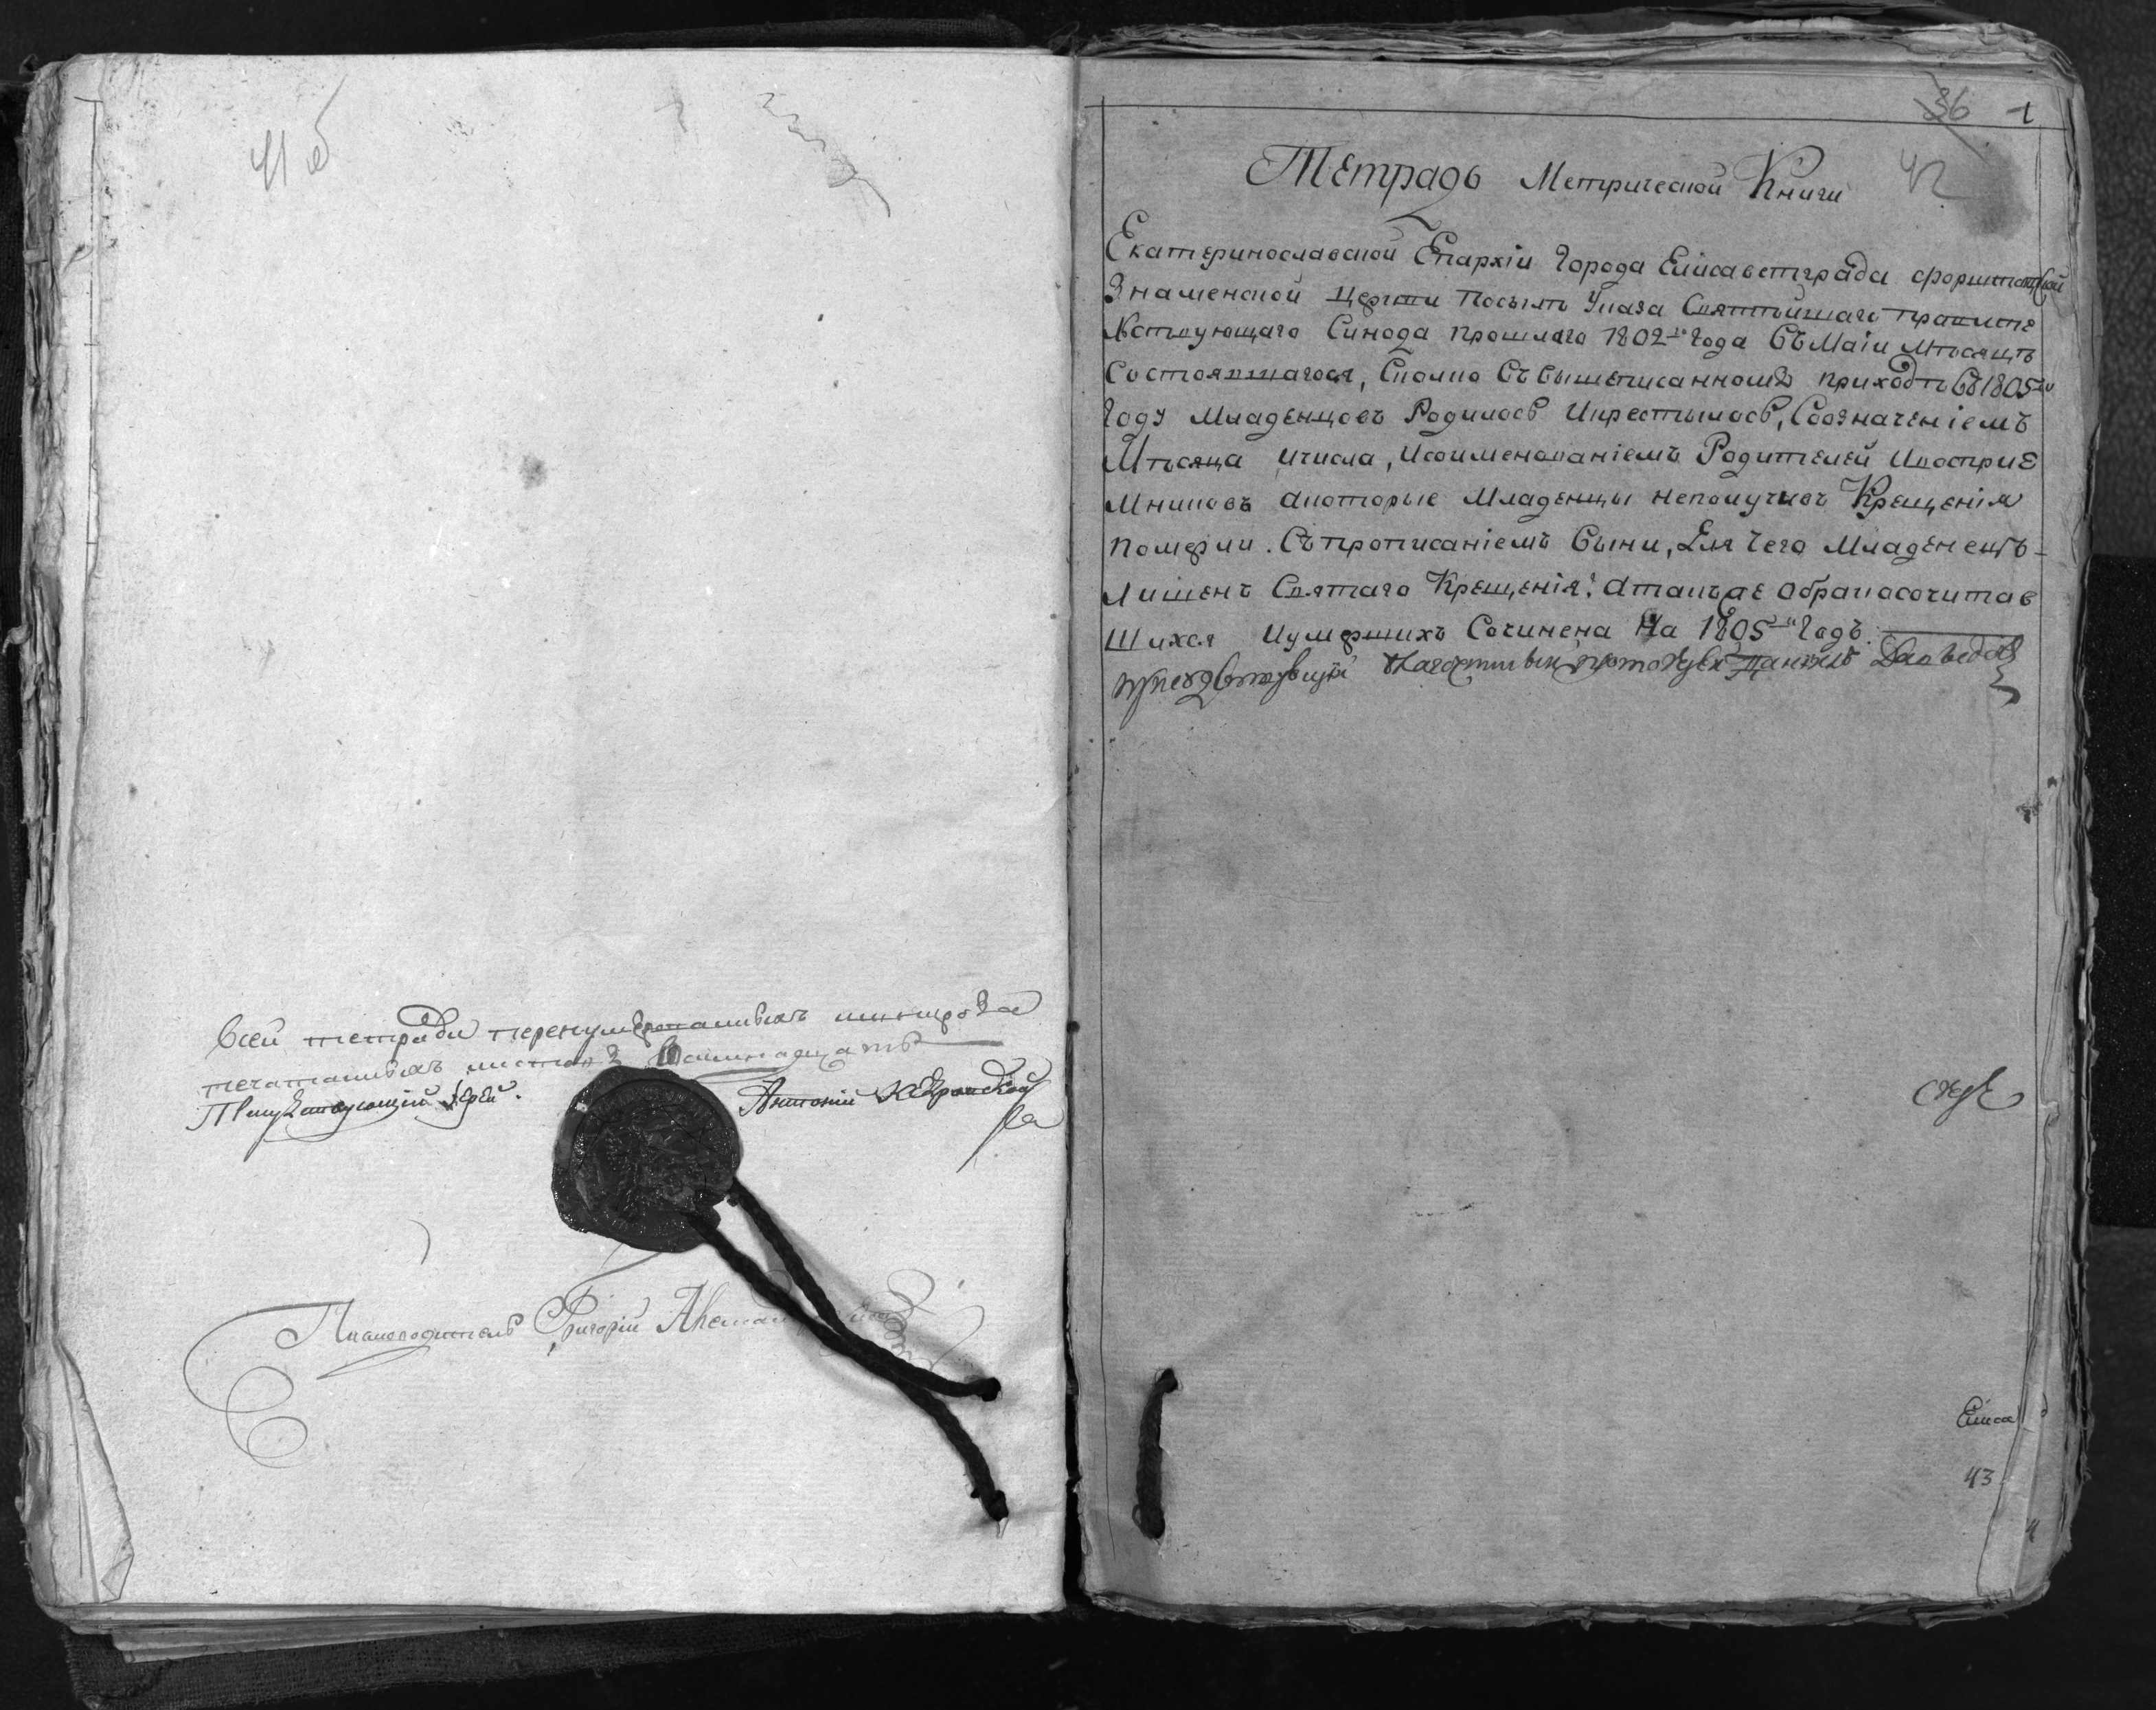 41 об
Всей тетради перенумерованныхъ шнуроза
печатанныхъ листовъ
Присудствующій Іерей.
Антоній
Писмоводитель Григорій
36 1
42
Тетрадь Метрической Книги
Екатеринославской Епархіи Города Елисаветграда форштатской
Знаменской Церкви Посилѣ Указа Святѣйшаго Правите
лствующаго Синода прошлаго 1802го Года Въ Маіи Мѣсяцѣ
Состоявшагося, Сколко Въ Вышеписанномъ приходѣ Въ 1805мъ
Году Младенцовъ Родилось Икрестилось, Соозначеніемъ
Мѣсяца Ичисла, Исоименованіемъ Родителей Ивосприе
Мниковъ Акоторые Младенцы Неполучивъ Крещенія
Померли. Съпрописаніемъ Вины, Для Чего Младенецъ
Лишенъ Святаго Крещенія: Атакъже Обракосочитав
Шихся Иумершихъ Сочинена На 1805й Годъ.
присудствующій протоіерей
Елиса
43